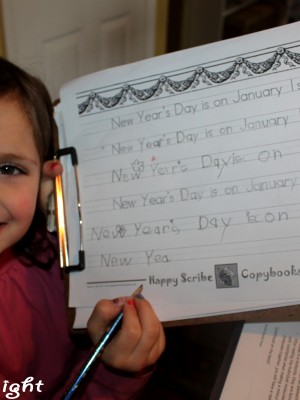 New Year's Day is on January 1s
New Year's Day is on January
New Year's Day is on
New Year's Day is on January 1s
New Year's Day is on
New Yea
Happy Scribe Copybooks
ight